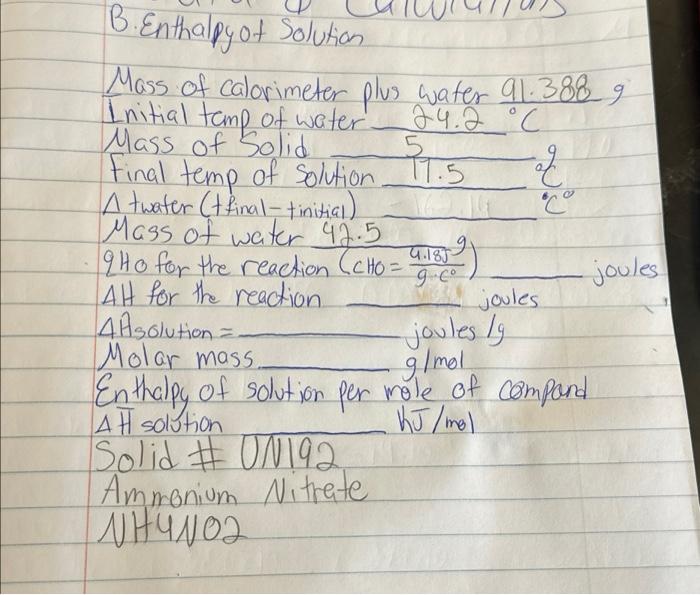 B. Enthalpy of Solution
Mass of calorimeter plus water 91.388 g
Initial temp of water 24.2 °C
Mass of Solid 5 g
Final temp of Solution 17.5 °C
Δ twater (tfinal - tinitial) C°
Mass of water 42.5 g
qHO for the reaction (CHO = 4.18J / g · C°) joules
ΔH for the reaction joules
ΔHsolution = joules/g
Molar mass g/mol
Enthalpy of solution per mole of compand
ΔH solution kJ/mol
Solid # UN192
Ammonium Nitrate
NH4NO2